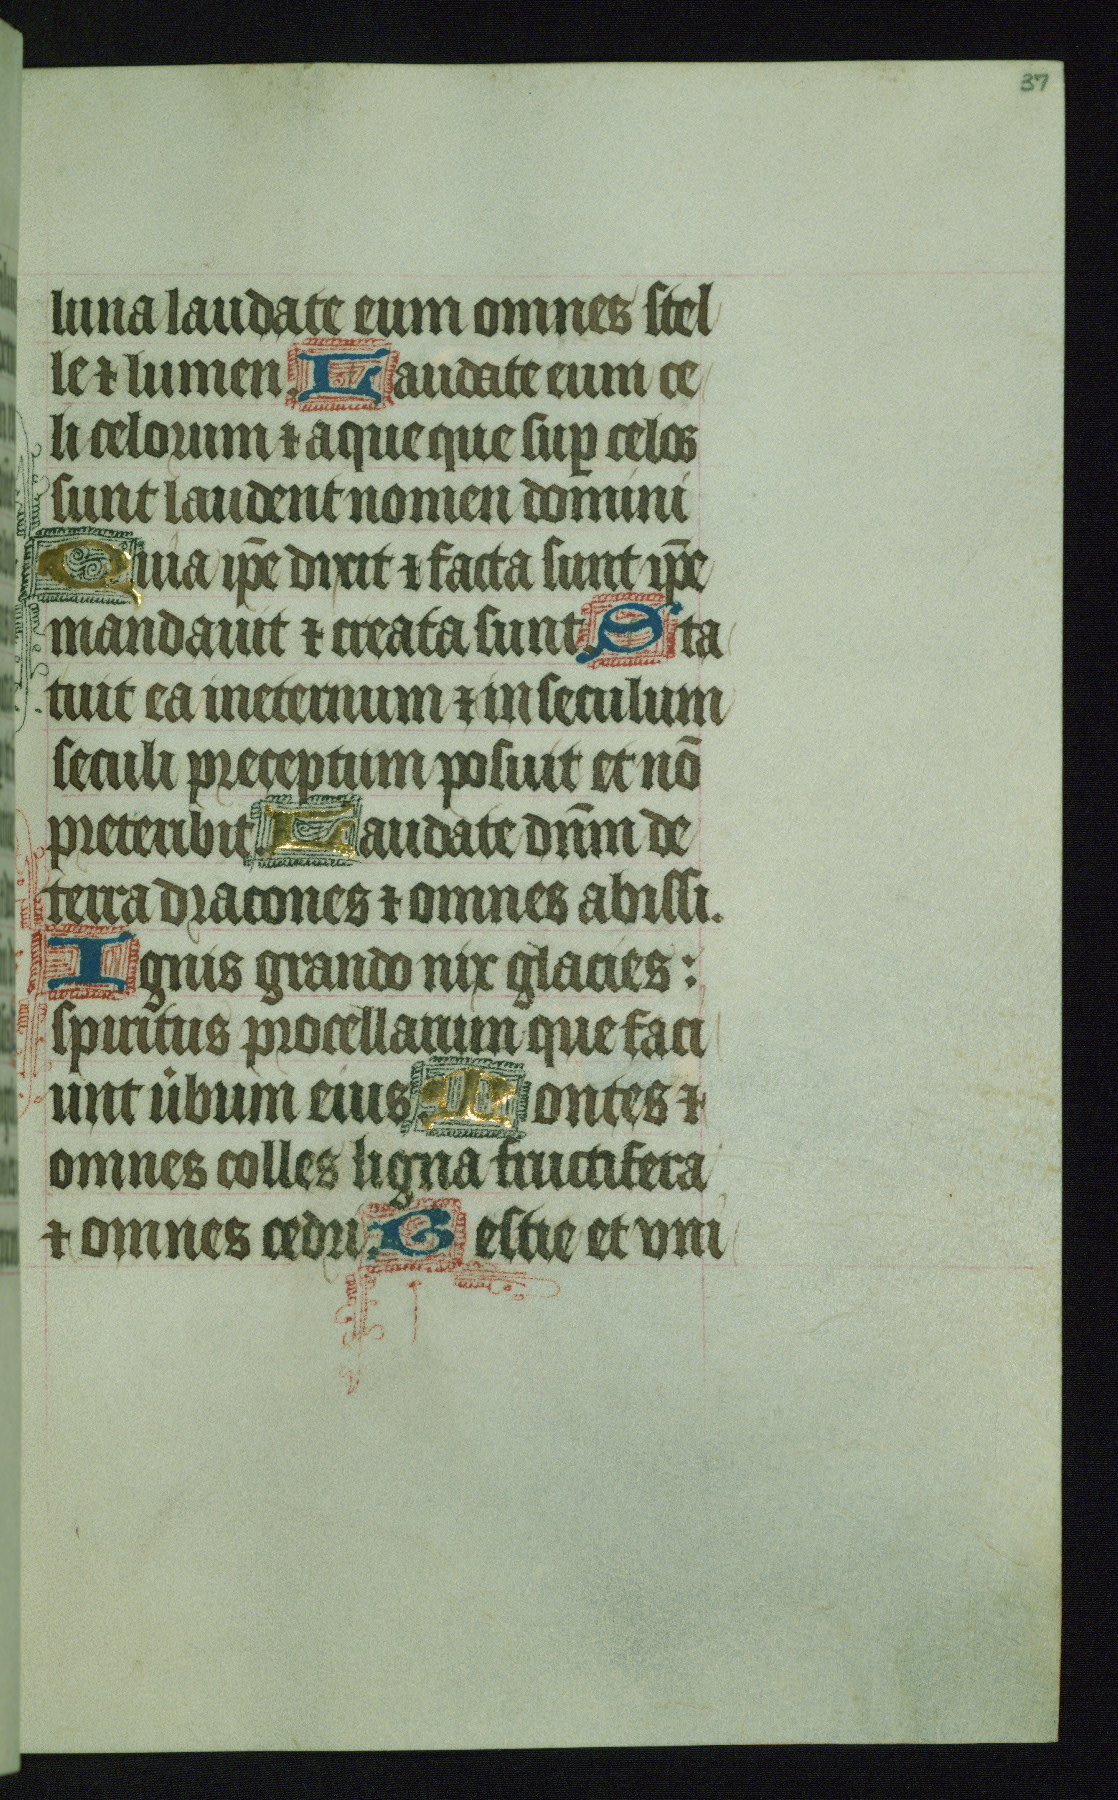 37
luna laudate eum omnes stel
le ⁊ lumen. Laudate eum ce
li celorum ⁊ aque que sup̱ celos
sunt laudent nomen domini
Quia ip̄e dixit ⁊ facta sunt ip̄e
mandauit ⁊ creata sunt. Sta
tuit ea ineternum ⁊ in seculum
seculi preceptum posuit et nō
preteribit. Laudate dn̄m de
terra dracones ⁊ omnes abissi.
Ignis grando nix glacies :
spiritus procellarum que faci
unt u̇bum eius. Montes ⁊
omnes colles ligna fructifera
⁊ omnes cedri. Bestie et vni